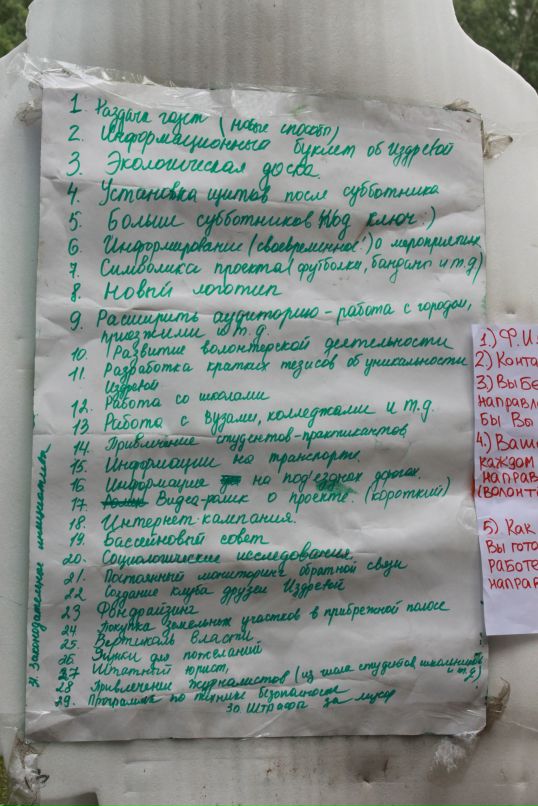 1. Раздача газет (новые способы)
2. Информационный буклет об Издревой
3. Экологическая доска.
4. Установка щитов после субботника
5. Больше субботников ключ :)
6. Информирование (своевременное!) о мероприятиях
7. Символика проекта (футболки, банданы и т.д)
8. Новый логотип
9. Расширить аудиторию – работа с городом,
приезжими и т.д.
10. Развитие волонтерской деятельности
11. Разработка кратких тезисов об уникальности
Издревой
12. Работа со школами
13. Работа с вузами, колледжами и т.д.
14. Привлечение студентов-практикантов
15. Информации на транспорте
16. Информация на подъездных дорогах.
17. Видео-ролик о проекте. (короткий)
18. Интернет-кампания.
19. Бассейновый совет
20. Социологические исследования
21. Постоянный мониторинг обратной связи
22. Создание клуба друзей Издревой
23 Фандрайзинг
24 Покупка земельных участков в прибрежной полосе
25. Вертикаль власти
26. Ящики для пожеланий
27 Штатный юрист,
28 Привлечение журналистов (из числа студентов, школьников
и т.д)
29. Программа по технике безопасности
30. Штрафы за мусор
31. Законодательные инициативы
1.) Ф.И.
2) Конта
3) Выбе
направл
бы Вы
4) Ваши
каждом
направ
(волонт
5) Как
Вы гото
работе
направ